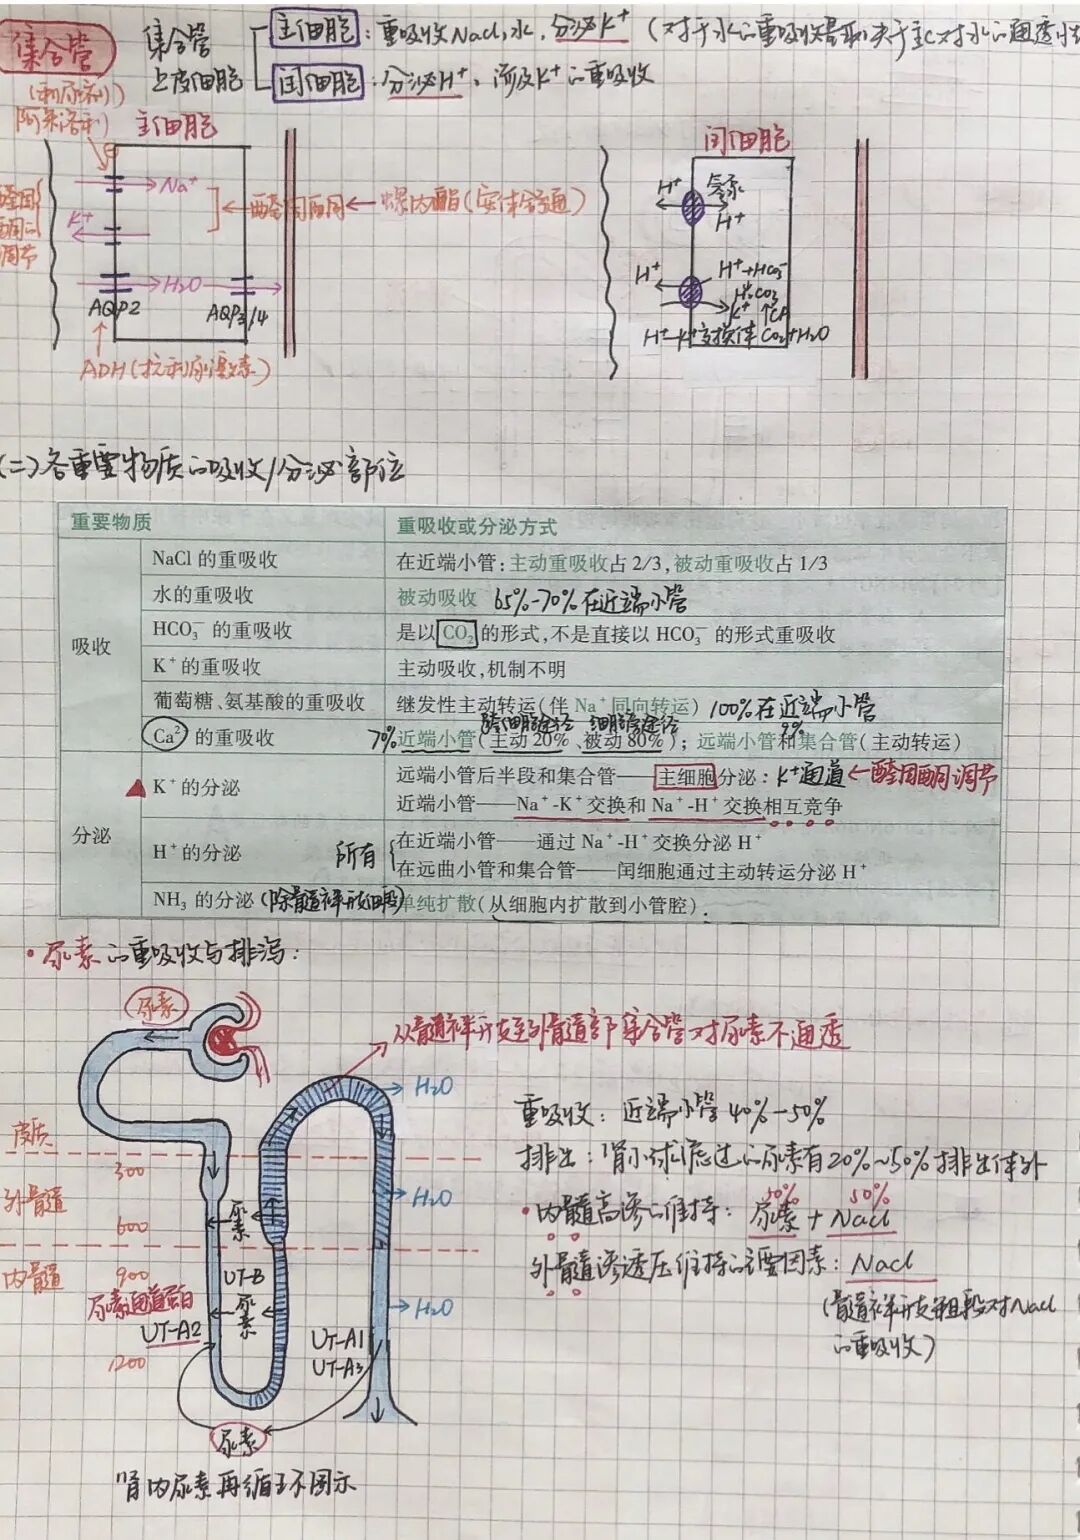 集合管
集合管
上皮细胞
主细胞：重吸收NaCl、水，分泌K⁺（对于水的重吸收量取决于主C对水的通透性
闰细胞：分泌H⁺、涉及K⁺的重吸收
(利尿剂)
阿米洛利
主细胞
Na⁺
K⁺
醛固酮的调节
醛固酮←螺内酯(安体舒通)
H₂O
AQP2
AQP3/4
ADH(抗利尿激素)
闰细胞
H⁺ 氢泵
H⁺
H⁺ H⁺+HCO₃⁻
H₂CO₃
K⁺ ↑CA
H⁺-K⁺交换体 CO₂+H₂O
(二)各重要物质的吸收/分泌部位
重要物质 重吸收或分泌方式
吸收
NaCl 的重吸收 在近端小管：主动重吸收占 2/3，被动重吸收占 1/3
水的重吸收 被动吸收 65%-70%在近端小管
HCO₃⁻ 的重吸收 是以 CO₂ 的形式，不是直接以 HCO₃⁻ 的形式重吸收
K⁺的重吸收 主动吸收，机制不明
葡萄糖、氨基酸的重吸收 继发性主动转运(伴 Na⁺同向转运) 100%在近端小管
跨细胞途径 细胞旁途径 9%
Ca²⁺ 的重吸收 70% 近端小管(主动 20%、被动 80%)；远端小管和集合管(主动转运)
分泌
K⁺的分泌 远端小管后半段和集合管——主细胞分泌：K⁺通道←醛固酮调节
近端小管——Na⁺-K⁺交换和 Na⁺-H⁺交换相互竞争
H⁺的分泌 所有 在近端小管——通过 Na⁺-H⁺交换分泌 H⁺
在远曲小管和集合管——闰细胞通过主动转运分泌 H⁺
NH₃ 的分泌(除髓袢细段) 单纯扩散(从细胞内扩散到小管腔)
·尿素的重吸收与排泻：
尿素
从髓袢升支至外髓部集合管对尿素不通透
H₂O
重吸收：近端小管40%-50%
皮质
排出：肾小球滤过的尿素有20%~50%排出体外
300
外髓
H₂O
50% 50%
·内髓高渗的维持：尿素+NaCl
尿素
600
外髓渗透压维持的主要因素：NaCl
内髓
900
UT-B
尿素通道蛋白
尿素
H₂O
(髓袢升支粗段对NaCl
的重吸收)
UT-A2
UT-A1
UT-A3
1200
尿素
肾内尿素再循环图示